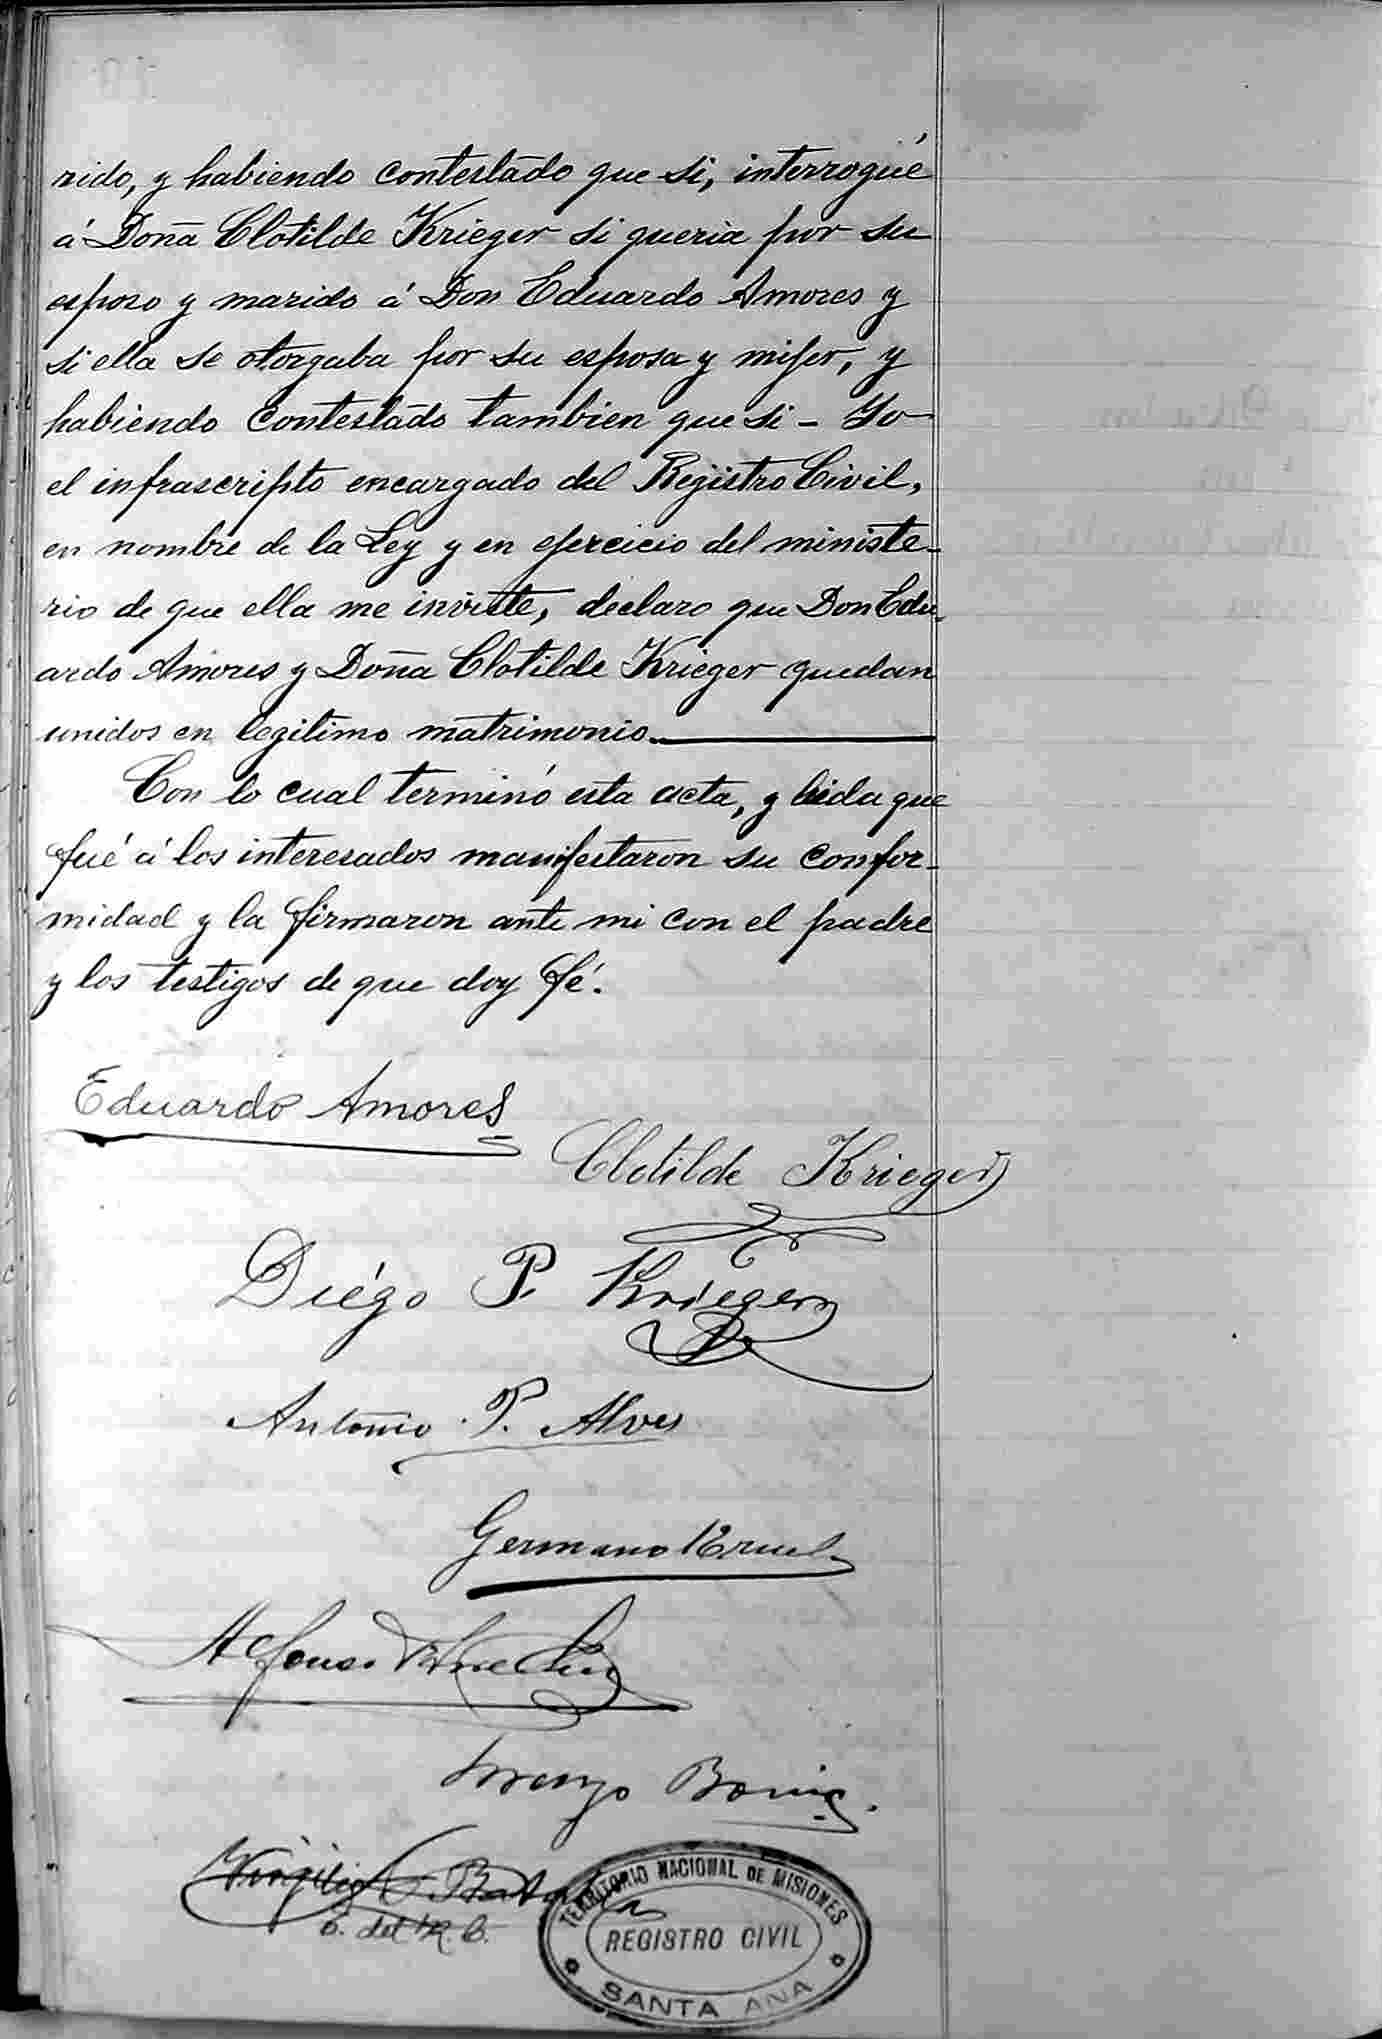 rido, y habiendo contestado que si, interrogué
á Doña Clotilde Krieger si queria por su
esposo y marido á Don Eduardo Amores y
si ella se otorgaba por su esposa y mujer, y
habiendo contestado tambien que si - Yo
el infrascripto encargado del Registro Civil,
en nombre de la Ley y en ejercicio del ministe-
rio de que ella me inviste, declaro que Don Edu-
ardo Amores y Doña Clotilde Krieger quedan
unidos en legitimo matrimonio.
Con lo cual terminó esta acta, y leida que
fué á los interesados manifestaron su confor-
midad y la firmaron ante mi con el padre
y los testigos de que doy fé.
Eduardo Amores
Clotilde Krieger
Diégo P. Krieger
Antonio P. Alves
Germano
Alfonso
Lorenzo
Virgilio
E. del R. C.
TERRITORIO NACIONAL DE MISIONES
REGISTRO CIVIL
SANTA ANA